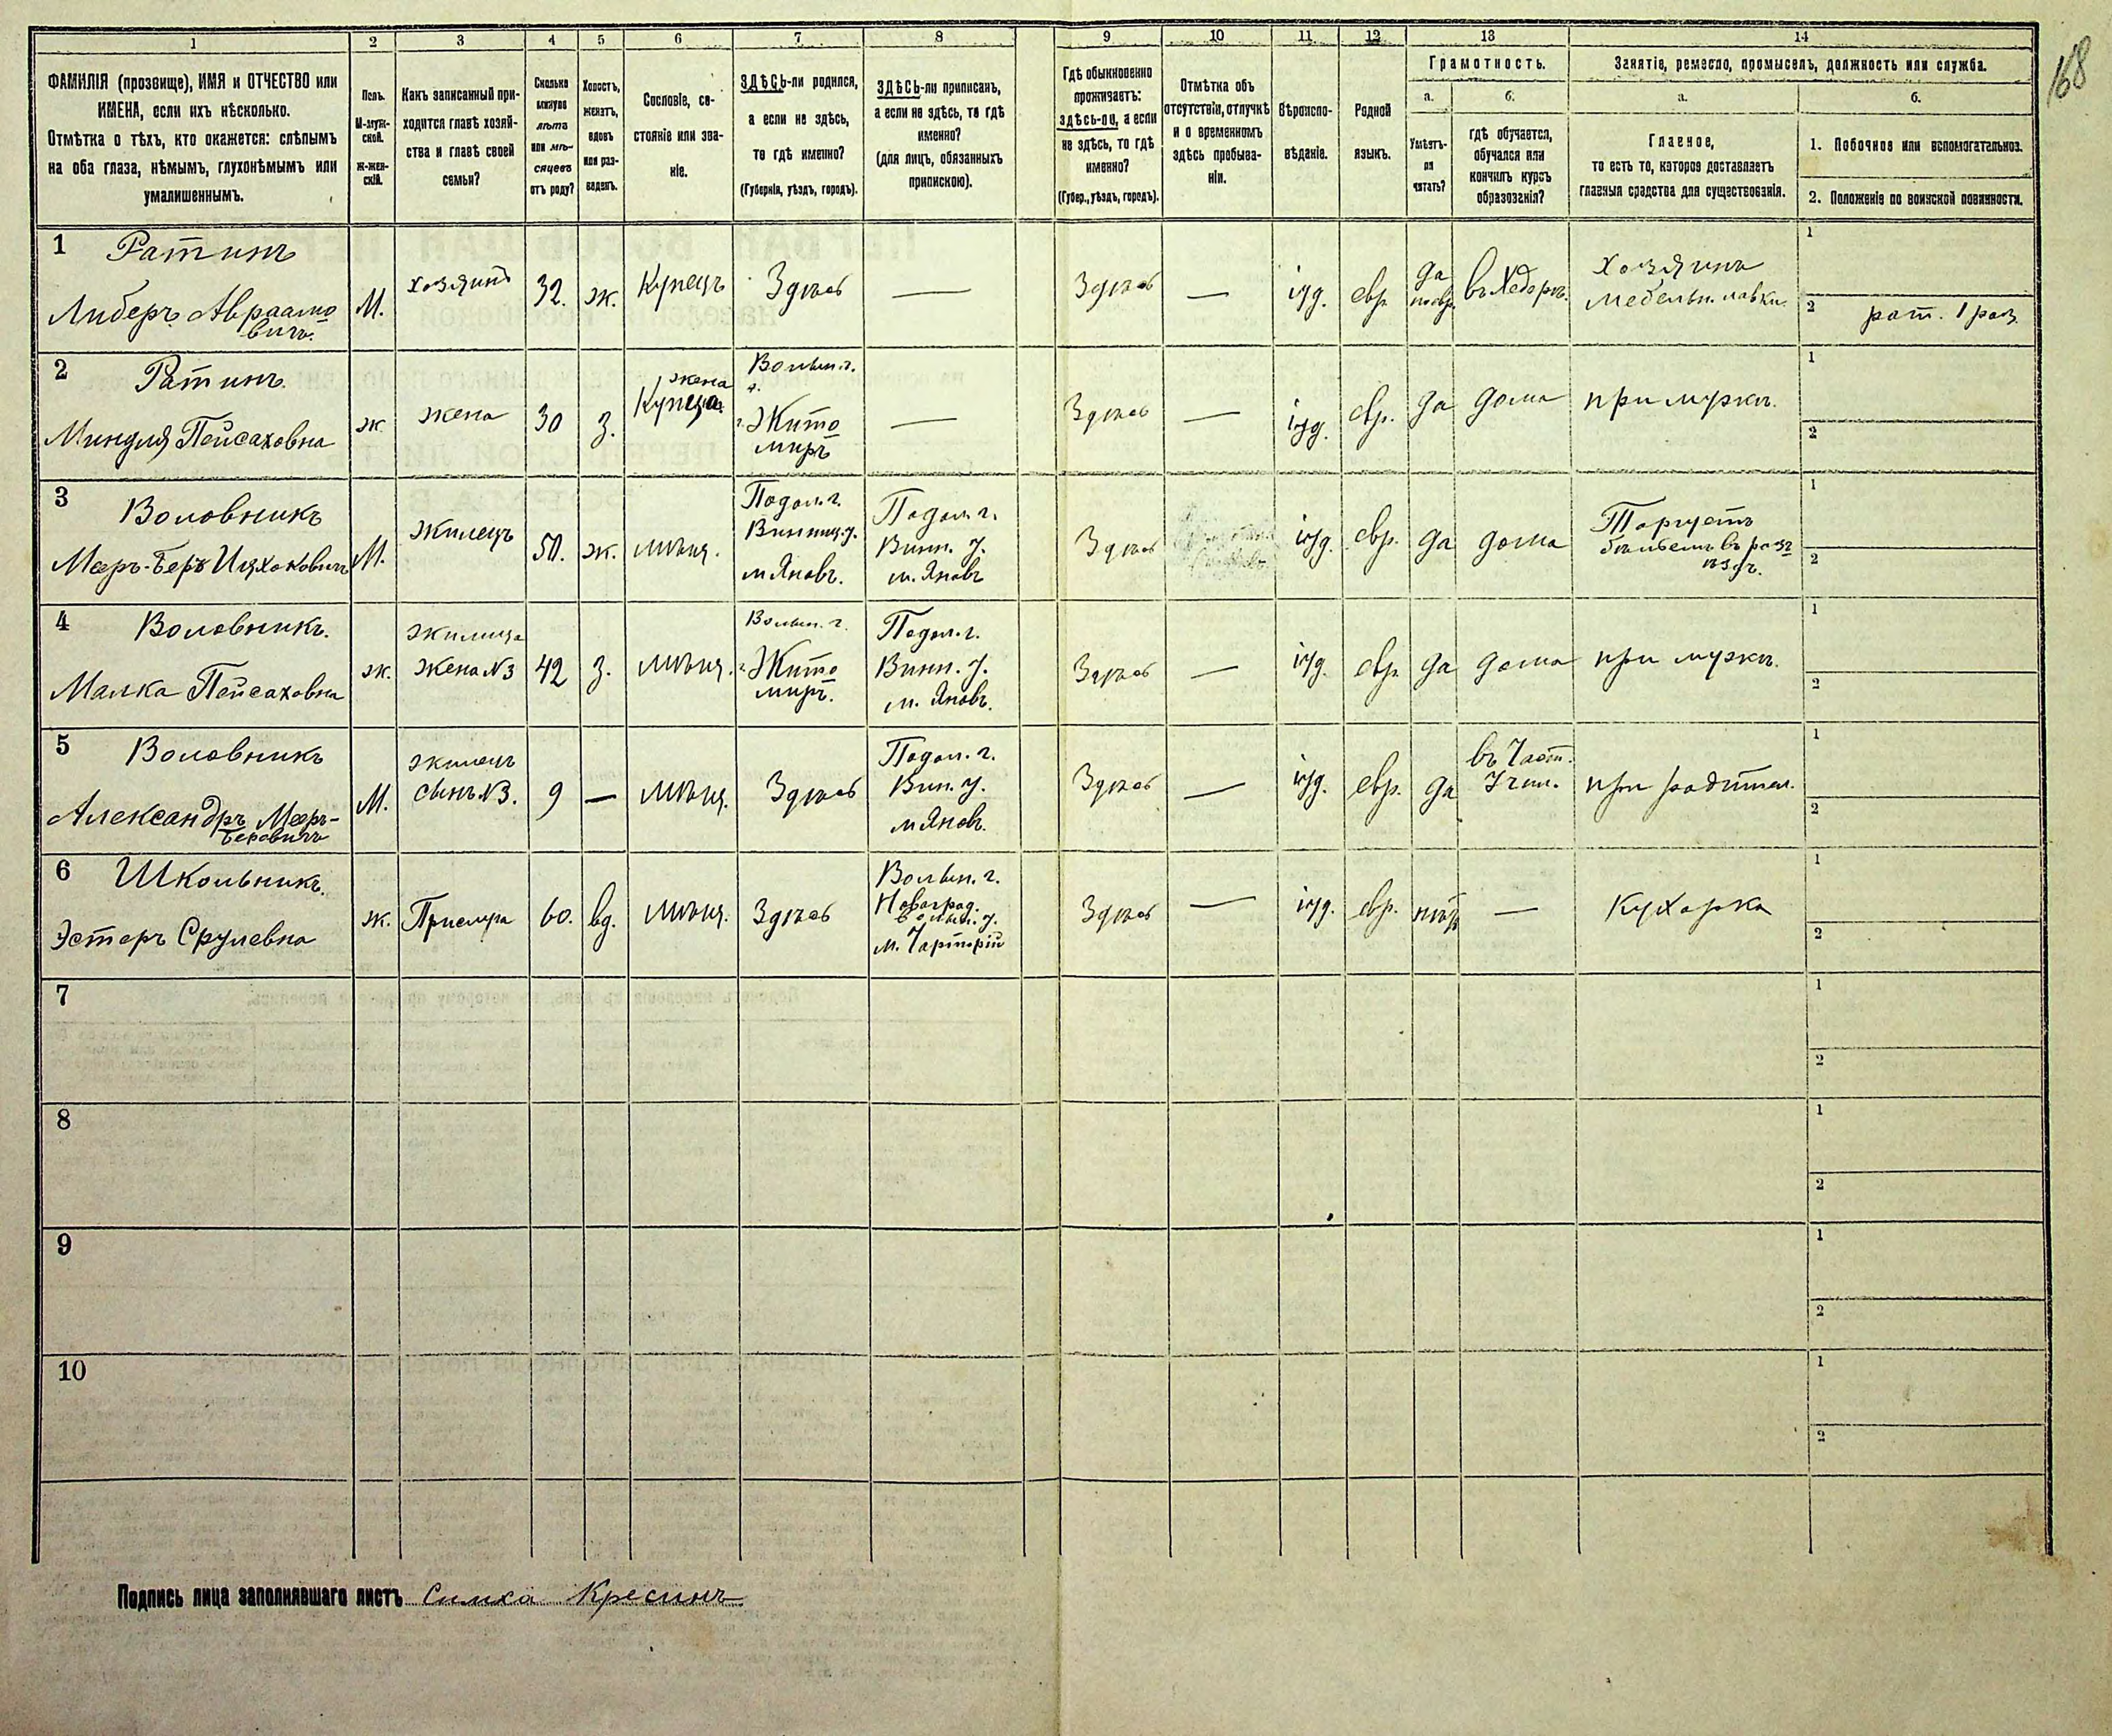 168
1 2 3 4 5 6 7 8 9 10 11 12 13 14
ФАМИЛІЯ (прозвище), ИМЯ и ОТЧЕСТВО или
ИМЕНА, если ихъ нѣсколько.
Отмѣтка о тѣхъ, кто окажется: слѣпымъ
на оба глаза, нѣмымъ, глухонѣмымъ или
умалишеннымъ.
Полъ.
М-муж-
ской.
ж-жен-
скій.
Какъ записанный при-
ходится главѣ хозяй-
ства и главѣ своей
семьи?
Сколько
минуло
лѣтъ
или мѣ-
сяцевъ
отъ роду?
Холостъ,
женатъ,
вдовъ
или раз-
веденъ.
Сословіе, со-
стояніе или зва-
ніе.
ЗДѢСЬ-ли родился,
а если не здѣсь,
то гдѣ именно?
(Губернія, уѣздъ, городъ).
ЗДѢСЬ-ли приписанъ,
а если не здѣсь, то гдѣ
именно?
(для лицъ, обязанныхъ
припискою).
Гдѣ обыкновенно
проживаетъ:
здѣсь-ли, а если
не здѣсь, то гдѣ
именно?
(Губер., уѣздъ, городъ).
Отмѣтка объ
отсутствіи, отлучкѣ
и о временномъ
здѣсь пребыва-
ніи.
Вѣроиспо-
вѣданіе.
Родной
языкъ.
Грамотность.
а.
Умѣетъ-
ли
читать?
б.
гдѣ обучается,
обучался или
кончилъ курсъ
образованія?
Занятіе, ремесло, промыселъ, должность или служба.
а.
Главное,
то есть то, которое доставляетъ
главныя средства для существованія.
б.
1. Побочное или вспомогательное.
2. Положеніе по воинской повинности.
1 Ратинъ
Либеръ Авраамо
вичъ.
М.
хозяинъ
32.
ж.
Купецъ
Здѣсь
—
Здѣсь
—
іуд.
евр.
да
по евр.
въ Хедерѣ.
Хозяинъ
мебельн. лавки.
1
2 рат. 1 раз.
2 Ратинъ.
Миндля Пейсаховна
ж.
жена
30
з.
жена
Купца.
Волын. г.
г. Жито
миръ
—
Здѣсь
—
іуд.
евр.
да
дома
при мужѣ.
1
2
3 Воловникъ
Мееръ-Беръ Ицхоковичъ
М.
жилецъ
50.
ж.
мѣщ.
Подол. г.
Винниц. у.
м Яновъ.
Подол. г.
Винн. у.
м. Яновъ
Здѣсь
іуд.
евр.
да
дома
Торгуетъ
бѣльемъ въ разъ
ѣздъ.
1
2
4 Воловникъ.
Малка Пейсаховна
ж.
жилица
жена №3
42
з.
мѣщ.
Волын. г.
г. Жито
миръ.
Подол. г.
Винн. у.
м. Яновъ.
Здѣсь
—
іуд.
евр.
да
дома
при мужѣ.
1
2
5 Воловникъ
Александръ Мееръ-
Беровичъ
М.
жилецъ
сынъ №3.
9
—
мѣщ.
Здѣсь
Подол. г.
Вин. у.
м Яновъ.
Здѣсь
—
іуд.
евр.
да
въ Част.
Учил.
при родител.
1
2
6 Школьникъ.
Эстеръ Срулевна
ж.
60.
вд.
мѣщ.
Здѣсь
Волын. г.
Новоград.
волын. у.
м. Чарторій
Здѣсь
—
іуд.
евр.
нѣтъ
—
Кухарка
1
2
7
1
2
8
1
2
9
1
2
10
1
2
Подпись лица заполнявшаго листъ Симха Кресинъ